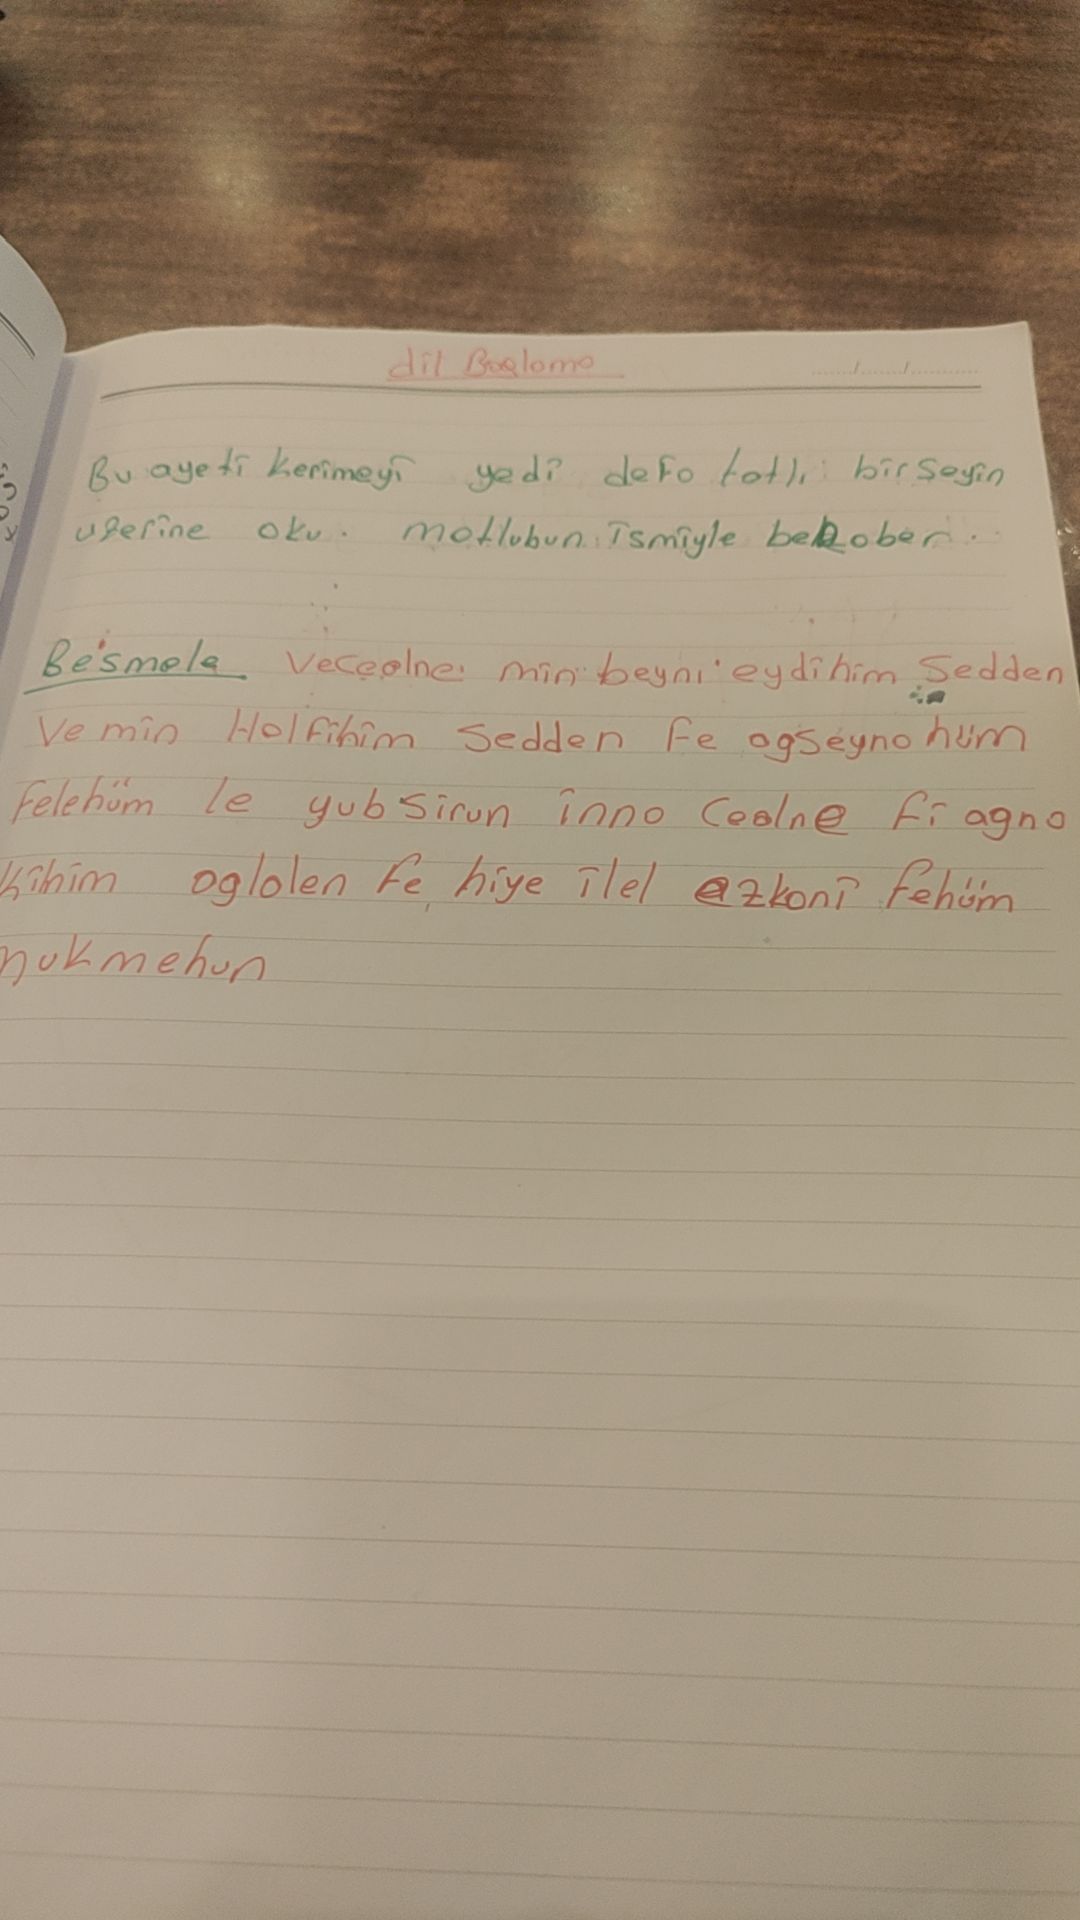 dil Bağlama
Bu ayeti kerimeyi yedi defa tatlı bir şeyin
üzerine oku. matlubun ismiyle beraber.
Besmele Veceolne min beyni eydihim Sedden
Ve min Halfihim Sedden fe agseynahüm
Felehüm le yubsirun inna Cealne fi agna
kihim aglalen fe hiye ilel ezkani fehüm
mukmehun